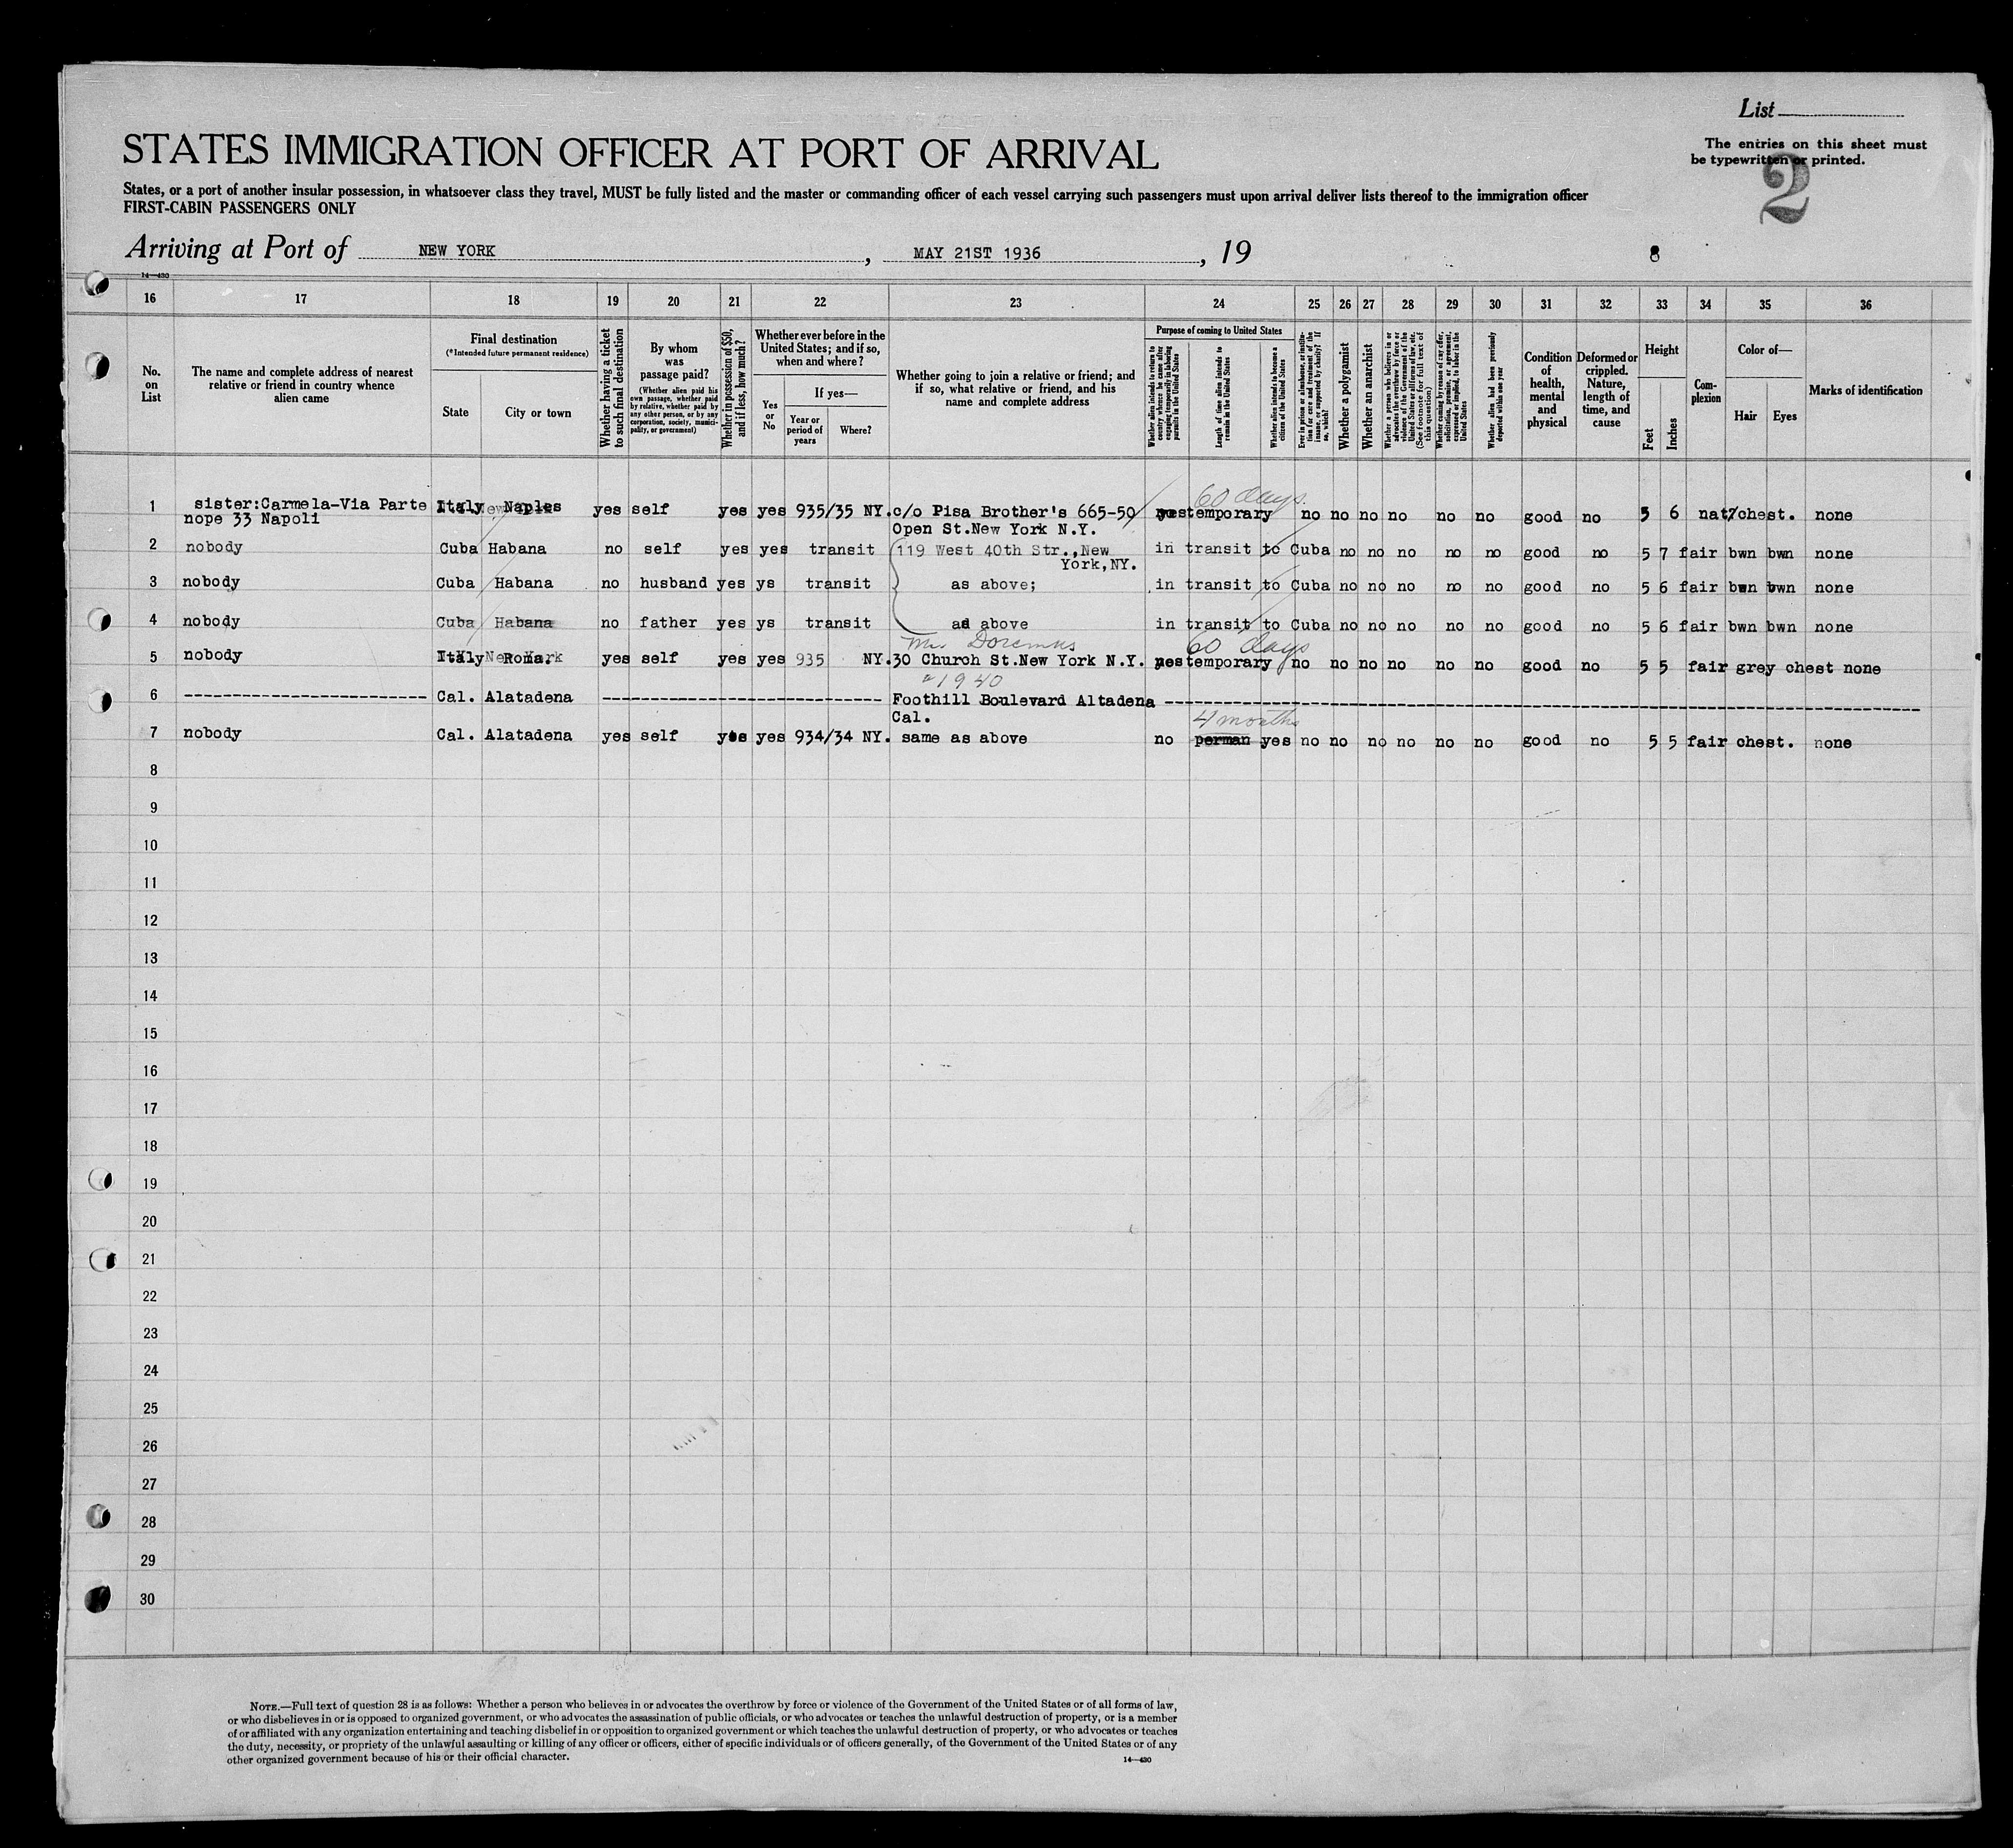 List
The entries on this sheet must
be typewritten or printed.
2
STATES IMMIGRATION OFFICER AT PORT OF ARRIVAL
States, or a port of another insular possession, in whatsoever class they travel, MUST be fully listed and the master or commanding officer of each vessel carrying such passengers must upon arrival deliver lists thereof to the immigration officer
FIRST-CABIN PASSENGERS ONLY
Arriving at Port of NEW YORK, MAY 21ST 1936, 19
8
14—430
16 17 18 19 20 21 22 23 24 25 26 27 28 29 30 31 32 33 34 35 36
No. on List
The name and complete address of nearest relative or friend in country whence alien came
Final destination
(*Intended future permanent residence)
State
City or town
Whether having a ticket to such final destination
By whom was passage paid?
(Whether alien paid his own passage, whether paid by relative, whether paid by any other person, or by any corporation, society, municipality, or government)
Whether in possession of $50, and if less, how much?
Whether ever before in the United States; and if so, when and where?
Yes or No
If yes—
Year or period of years
Where?
Whether going to join a relative or friend; and if so, what relative or friend, and his name and complete address
Purpose of coming to United States
Whether alien intends to return to country whence he came after engaging temporarily in laboring pursuits in the United States
Length of time alien intends to remain in the United States
Whether alien intends to become a citizen of the United States
Ever in prison or almshouse, or institution for care and treatment of the insane, or supported by charity? If so, which?
Whether a polygamist
Whether an anarchist
Whether a person who believes in or advocates the overthrow by force or violence of the Government of the United States or all forms of law, etc. (See footnote for full text of this question)
Whether coming by reason of any offer, solicitation, promise, or agreement, expressed or implied, to labor in the United States
Whether alien had been previously deported within one year
Condition of health, mental and physical
Deformed or crippled. Nature, length of time, and cause
Height
Feet
Inches
Complexion
Color of—
Hair
Eyes
Marks of identification
60 days.
1 sister:Carmela-Via Parte Italy Naples yes self yes yes 935/35 NY. c/o Pisa Brother's 665-50 yes temporary no no no no no no good no 5 6 nat/chest. none
nope 33 Napoli Open St.New York N.Y.
2 nobody Cuba Habana no self yes yes transit 119 West 40th Str.,New in transit to Cuba no no no no no good no 5 7 fair bwn bwn none
York,NY.
3 nobody Cuba Habana no husband yes ys transit as above; in transit to Cuba no no no no no good no 5 6 fair bwn bwn none
4 nobody Cuba Habana no father yes ys transit as above in transit to Cuba no no no no no good no 5 6 fair bwn bwn none
Mr. Doremus 60 days
5 nobody Italy Roma. yes self yes yes 935 NY. 30 Church St.New York N.Y. yes temporary no no no no no no good no 5 5 fair grey chest none
# 1940
6 Cal. Alatadena Foothill Boulevard Altadena
Cal.
4 months
7 nobody Cal. Alatadena yes self yes yes 934/34 NY. same as above no perman yes no no no no no no good no 5 5 fair chest. none
8
9
10
11
12
13
14
15
16
17
18
19
20
21
22
23
24
25
26
27
28
29
30
NOTE.—Full text of question 28 is as follows: Whether a person who believes in or advocates the overthrow by force or violence of the Government of the United States or of all forms of law,
or who disbelieves in or is opposed to organized government, or who advocates the assassination of public officials, or who advocates or teaches the unlawful destruction of property, or is a member
of or affiliated with any organization entertaining and teaching disbelief in or opposition to organized government or which teaches the unlawful destruction of property, or who advocates or teaches
the duty, necessity, or propriety of the unlawful assaulting or killing of any officer or officers, either of specific individuals or of officers generally, of the Government of the United States or of any
other organized government because of his or their official character.
14—430